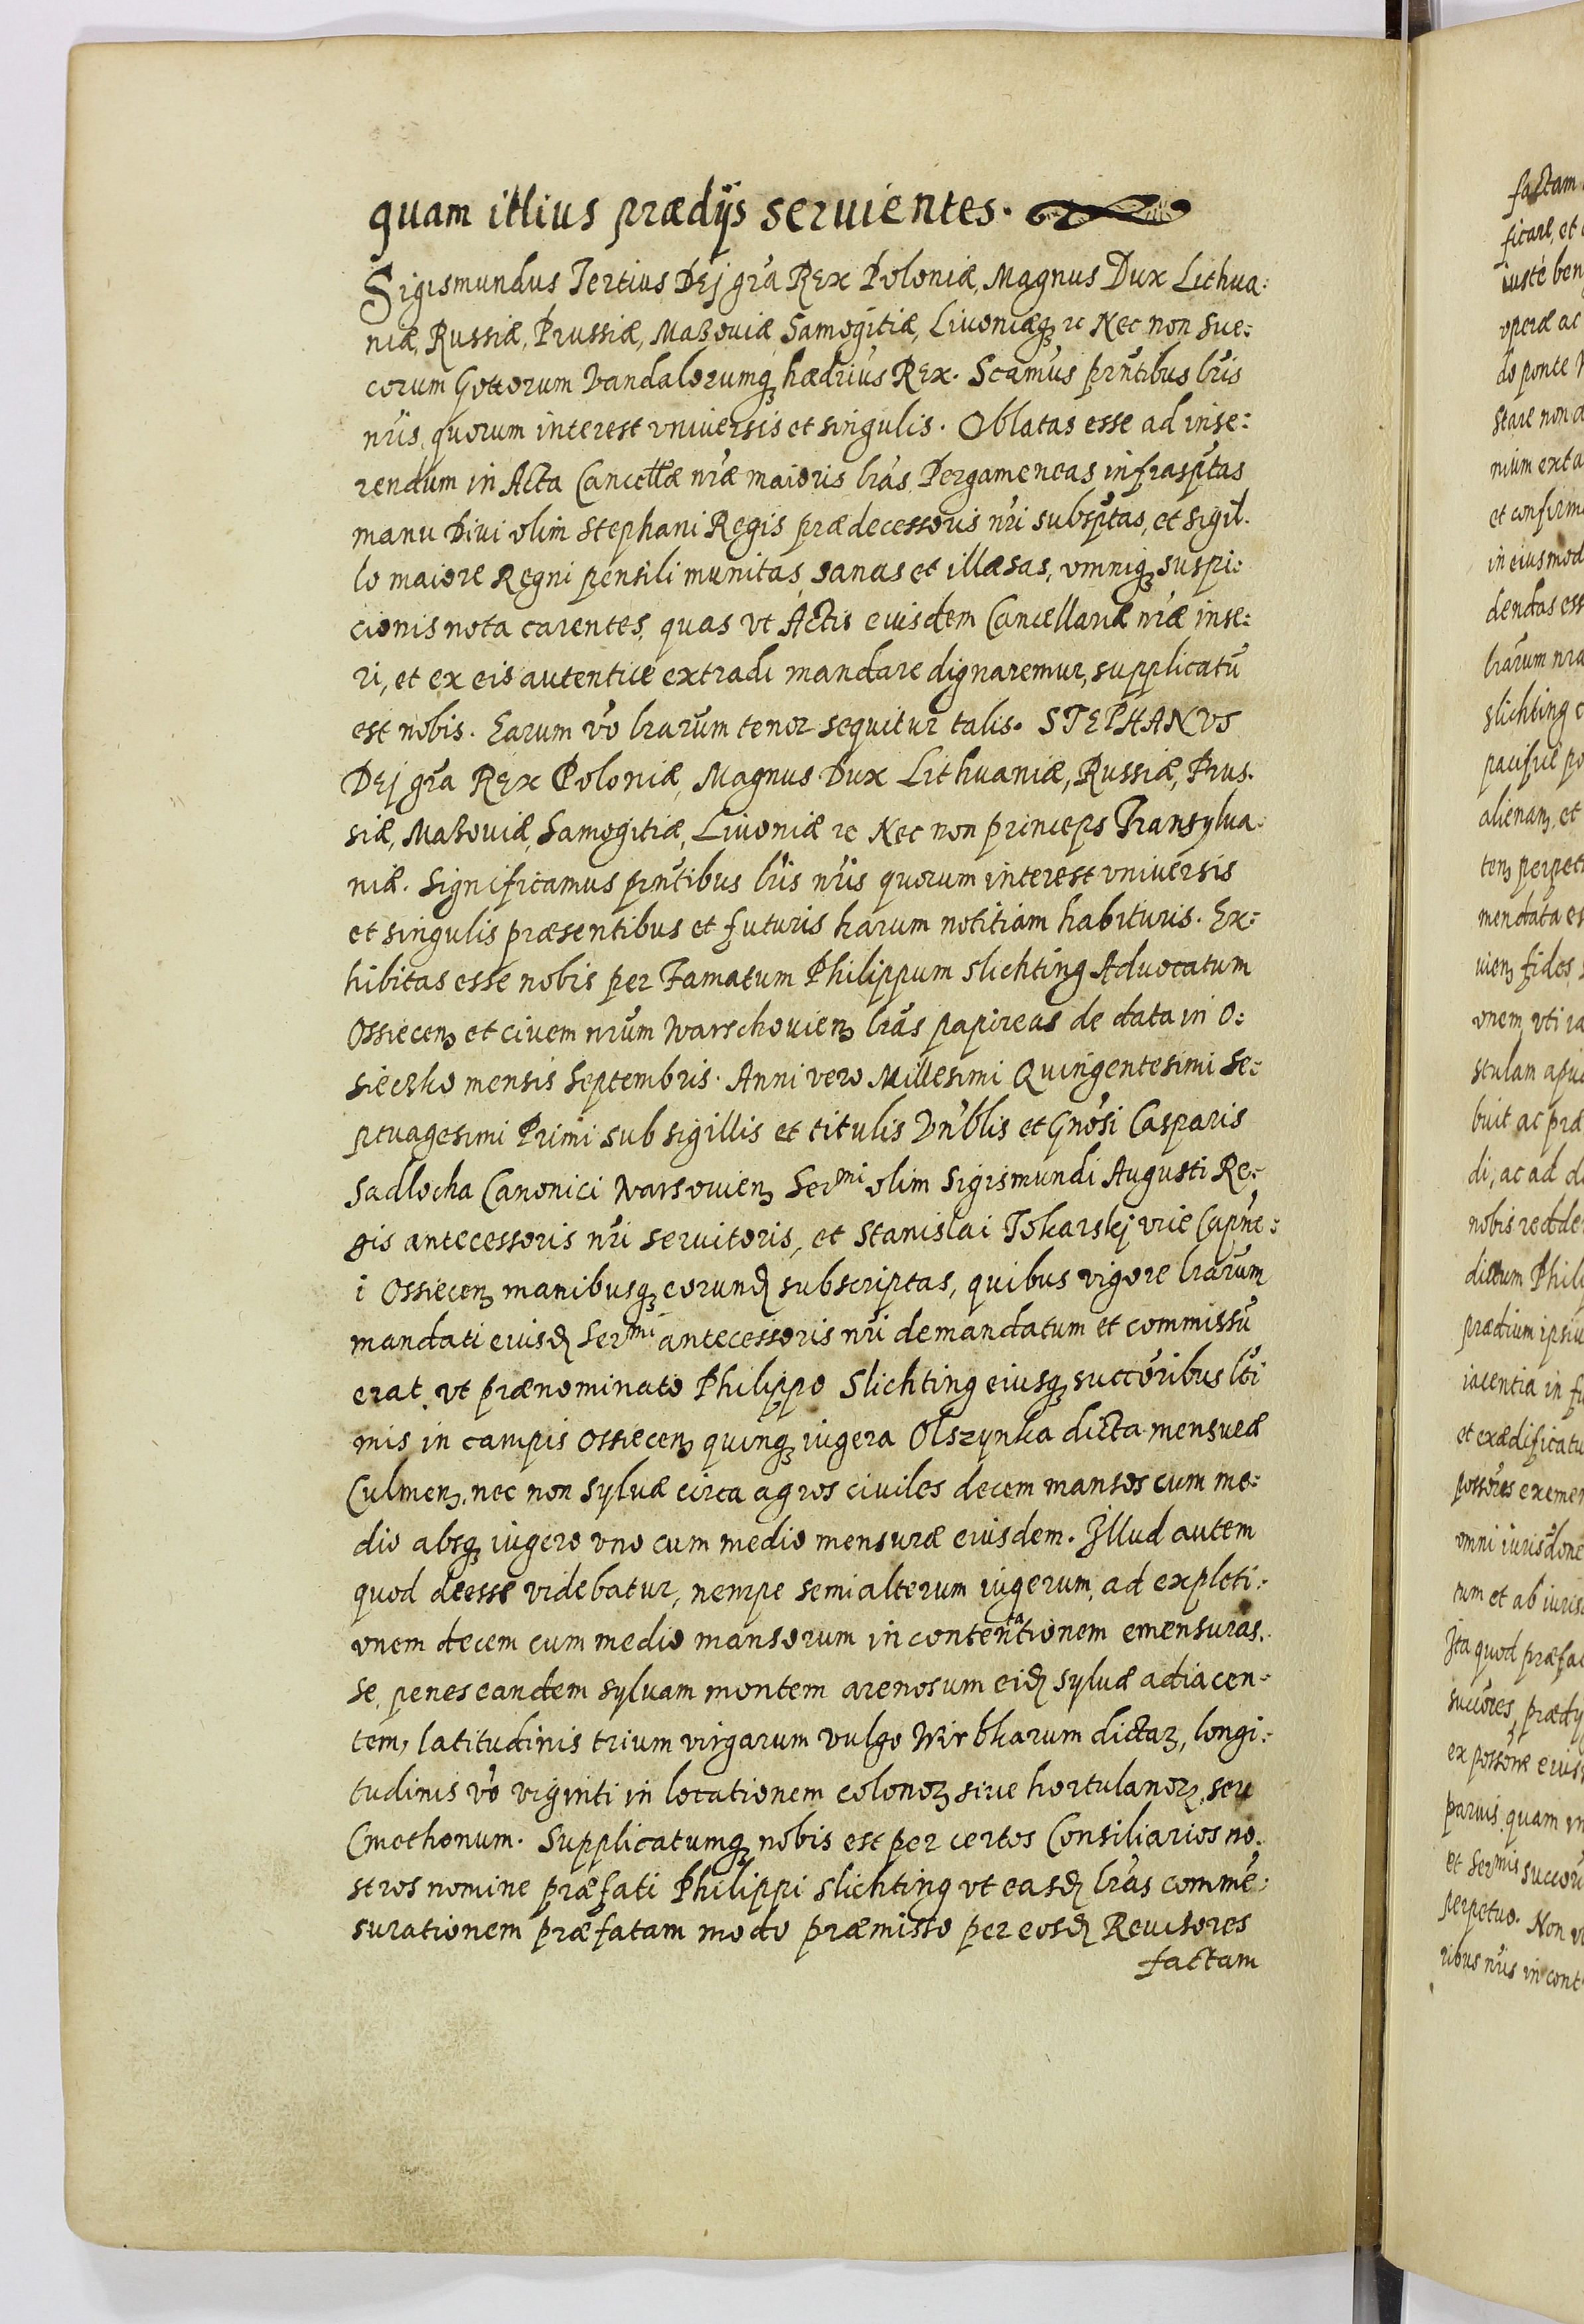 quam illius prædijs seruientes.
Sigismundus Tertius Dej gr̃a Rex Poloniæ, Magnus Dux Lithua:
niæ, Russiæ, Prussiæ, Mazouiæ, Samogitiæ, Liuoniæq3 rc Nec non Sue:
corum Gottorum Vandalorumq3 hædrius Rex. Scamus prñtibus lr̃is
nr̃is, quorum interest vniuersis et singulis. Oblatas esse ad inse:
rendum in Acta Cancellæ nr̃æ maioris lr̃as Pergameneas infrasptas
manu Diui olim Stephani Regis prædecessoris nr̃i subsptas, et sigil.
lo maiore Regni pensili munitas, sanas et illæsas, omniq3 suspi:
cionis nota carentes, quas vt Actis eiusdem Cancellariæ nr̃æ inse:
ri, et ex eis autentice extradi mandare dignaremur, supplicatũ
est nobis. Earum vo lrarum tenor sequitur talis. STEPHANVS
Dej gr̃a Rex Poloniæ, Magnus Dux Lithuaniæ, Russiæ, Prus.
siæ, Mazouiæ, Samogitiæ, Liuoniæ rc Nec non princeps Transylua:
niæ. Significamus prñtibus lr̃is nr̃is quorum interest vniuersis
et singulis præsentibus et futuris harum notitiam habituris. Ex:
hibitas esse nobis per Famatum Philippum Slichting Aduocatum
Ossiecen3 et ciuem nrum Warschouien3 lr̃as papireas de data in O:
sieczko mensis Septembris. Anni vero Millesimi Quingentesimi Se:
ptuagesimi Primi sub sigillis et titulis Vn̍blis et Gnosi Casparis
Sadlocha Canonici Warsouien3 Ser^mi olim Sigismundi Augusti Re:
gis antecessoris nr̃i seruitoris, et Stanislai Tokarskj vice Capne:
i Ossiecen3 manibusq3 eorund subscriptas, quibus vigore lrarum
mandati eiusd Ser^mi antecessoris nr̃i demandatum et commissũ
erat, vt prænominato Philippo Slichting eiusq3 succoribus lti
mis in campis Ossiecen3 quinq3 iugera Olszynka dicta mensuræ
Culmen3, nec non syluæ circa agros ciuiles decem mansos cum me:
dio absq3 iugero vno cum medio mensuræ eiusdem. Illud autem
quod deesse videbatur, nempe semialterum iugerum, ad expleti:
onem decem cum medio mansorum in contentationem emensuras,
se, penes eandem syluam montem arenosum eid syluæ adiacen:
tem, latitudinis trium virgarum vulgo Wirbkarum dictar3, longi:
tudinis vo viginti in locationem colonor3 siue hortulanor3 seu
Cmethonum. Supplicatumq3 nobis est per certos Consiliarios no:
stros nomine præfati Philippi Slichting vt easd lr̃as commẽ:
surationem præfatam modo præmisso per eosd Reuisores
factam
factam
ficare, et
iuste ben
operæ ac
do ponte
stare non
nium exta
et confirm
in eiusmod
dendas ess
lrarum nra
Slichting
pacifice po
alienan3, et
ten3 perpet
mendata es
uien3 fides
onem vti
buit ac præ
di, ac ad d
nobis redde
dictum Phili
prædium ipsiu
iacentia in fu
et exædificatu
omni iurisdone
rum et ab iuris
Ita quod præfa
succores, prædij
paruis, quam
et Ser^mis succor
perpetuo. Non
ribus nr̃is in cont